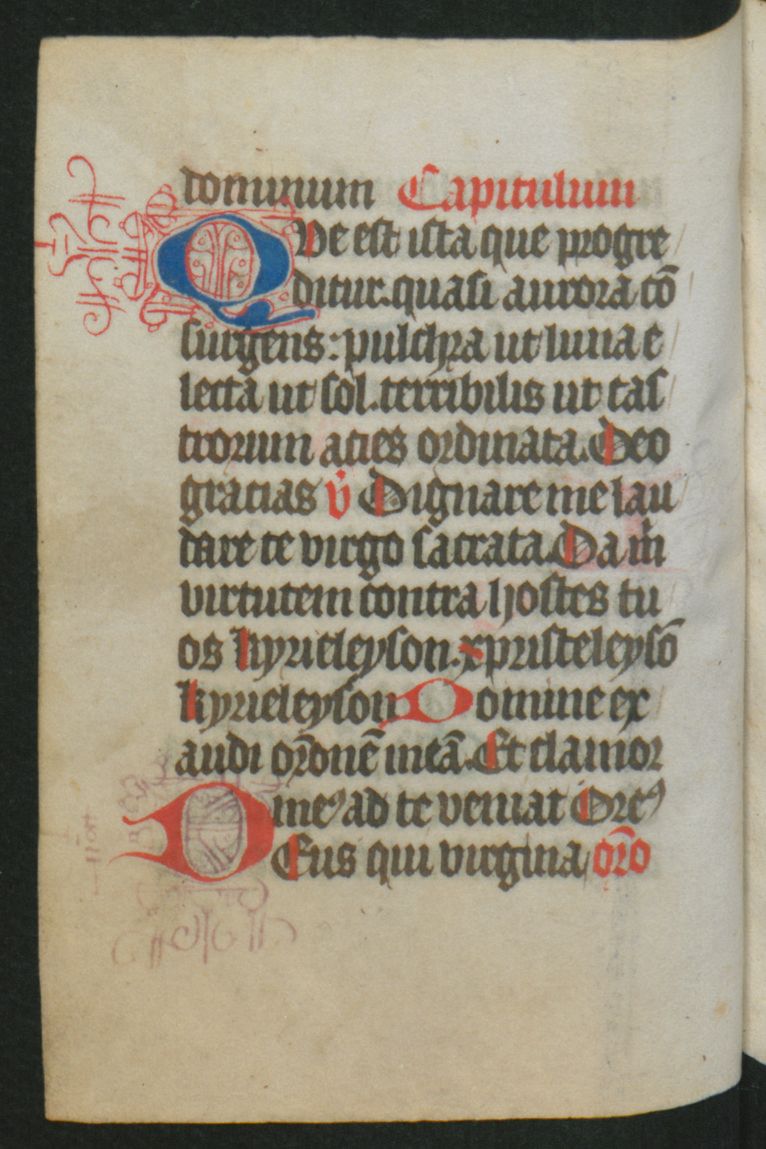 dominum Capitulum
Que est ista que progre
ditur.quasi aurora cō
surgens:pulchra ut luna e
lecta ut sol.terribilis ut cas
trorum acies ordinata.Deo
gracias v̉ Dignare me lau
dare te virgo sacrata.Da m̄
virtutem contra hostes tu
os kyrieleyson.xpristeleysō
kyrieleyson Domine ex
audi or̄onē meā.Et clamor
meꝰ ad te veniat Oreꝰ
DEus qui virgina or̄o